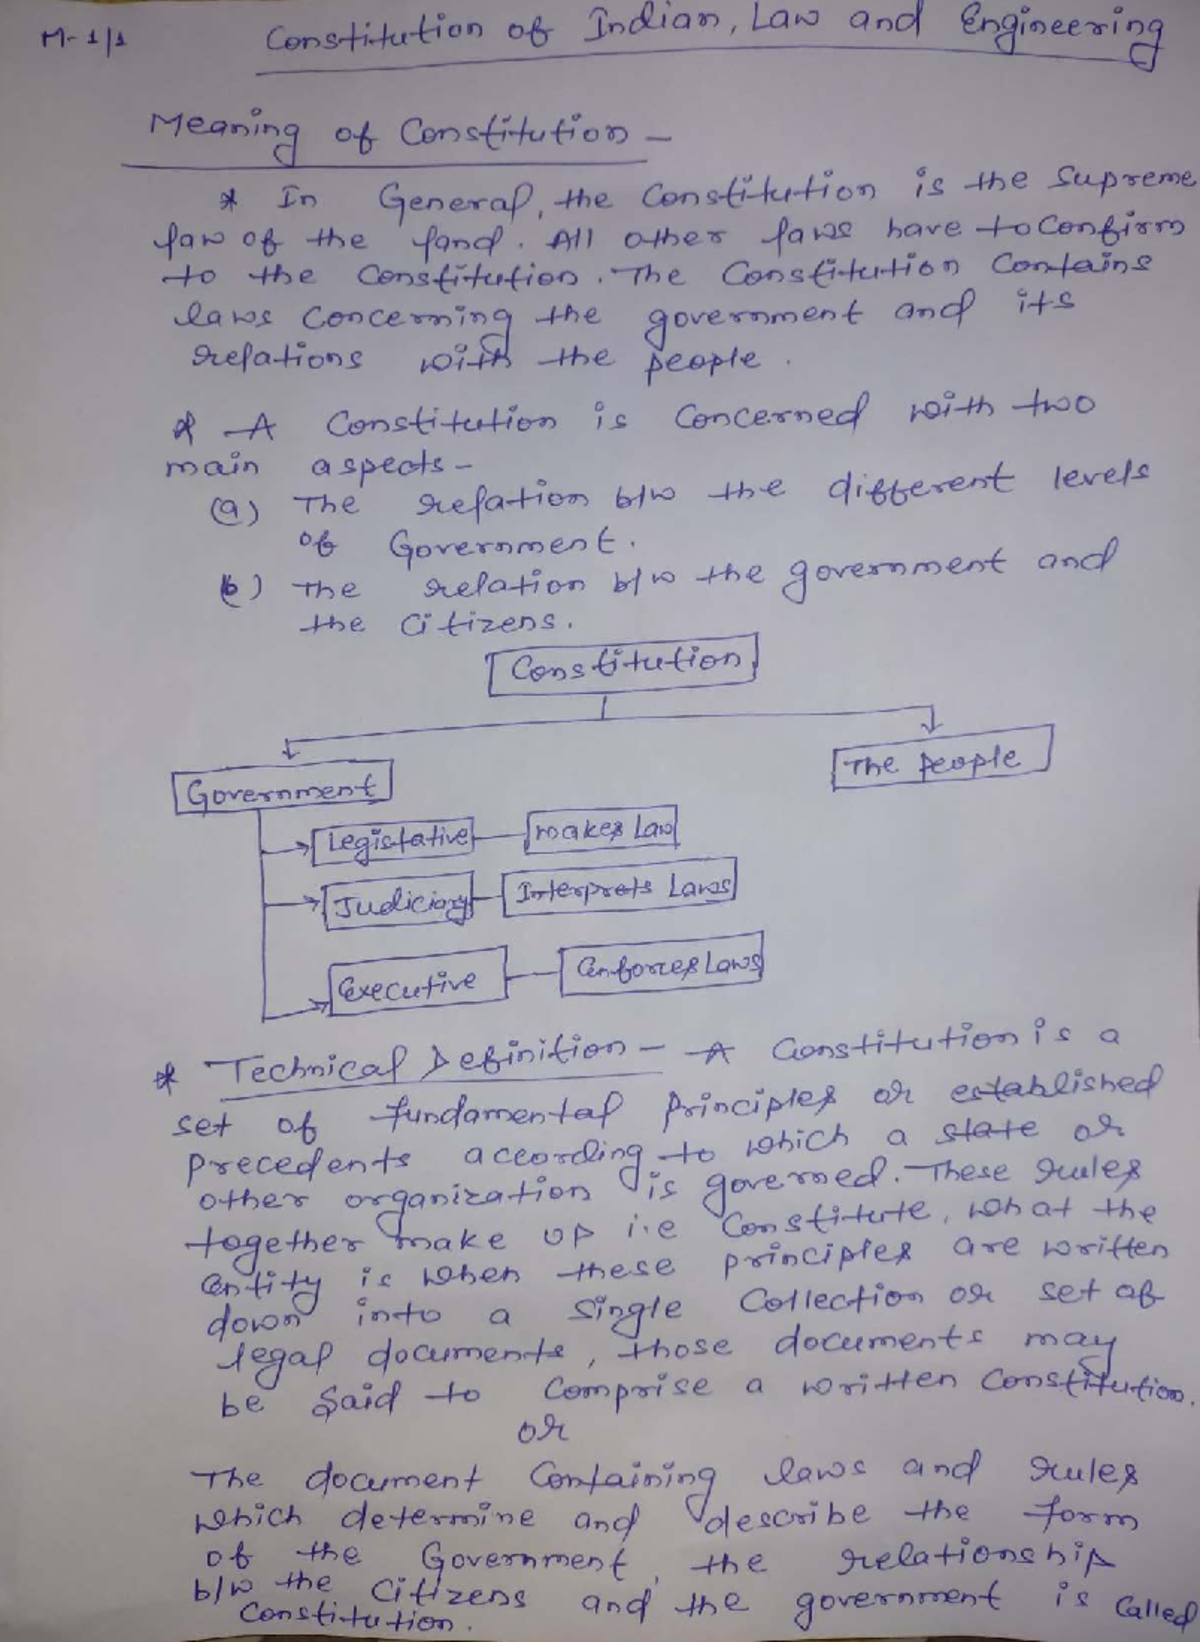 M-1/1
Constitution of Indian, Law and Engineering
Meaning of Constitution -
* In General, the Constitution is the Supreme
law of the land. All other laws have to Confirm
to the Constitution. The Constitution Contains
laws Concerning the government and its
relations with the people.
* A Constitution is Concerned with two
main aspects-
(a) The relation b/w the different levels
of Government.
(b) The relation b/w the government and
the Citizens.
Constitution
Government
The people
Legistative
makes Law
Judiciary
Interprets Laws
Executive
Enforces Laws
* Technical Definition - A Constitution is a
set of fundamental Principles or established
precedents according to which a state or
other organization is governed. These rules
together make up i.e Constitute, what the
Entity is when these principles are written
down into a Single Collection or set of
legal documents, those documents may
be Said to Comprise a written Constitution.
or
The document Containing laws and rules
which determine and describe the form
of the Government, the relationship
b/w the Citizens and the government is Called
Constitution.